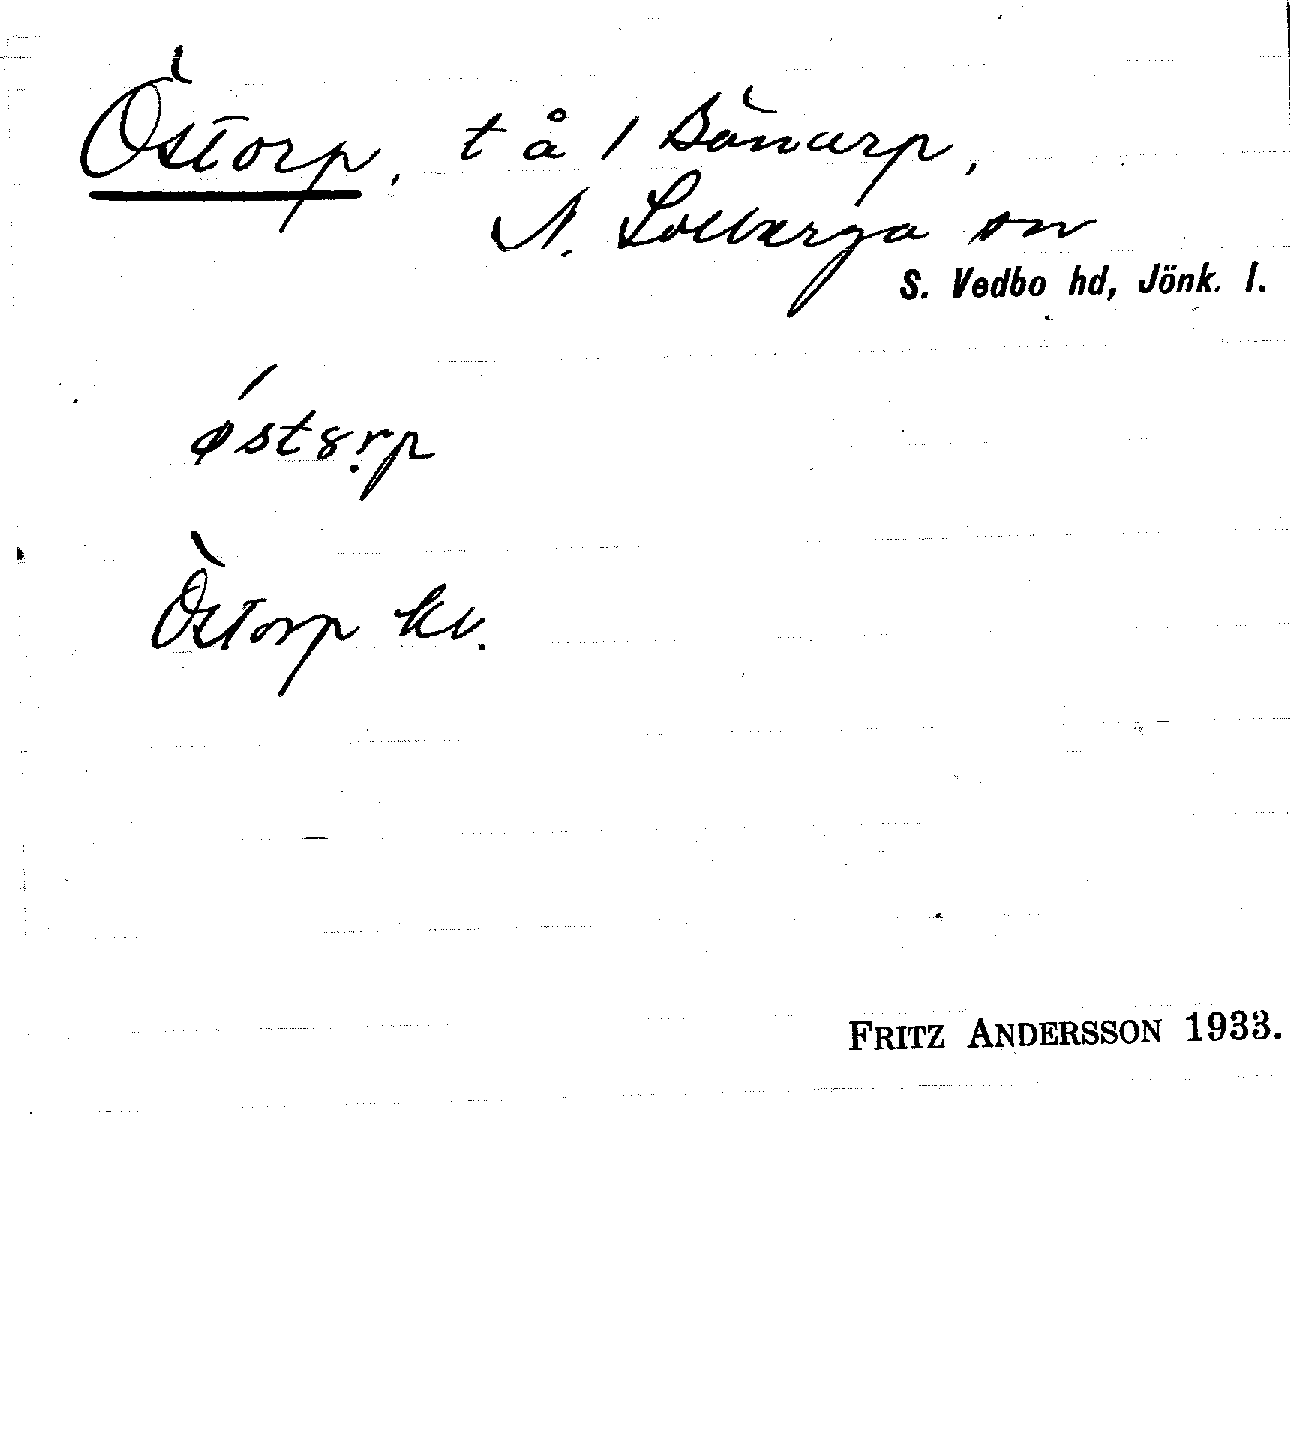 Östorp, t å 1 Bönarp,
N. Solberga sn
S. Vedbo hd, Jönk. l.
Östorp kv.
FRITZ ANDERSSON 1933.